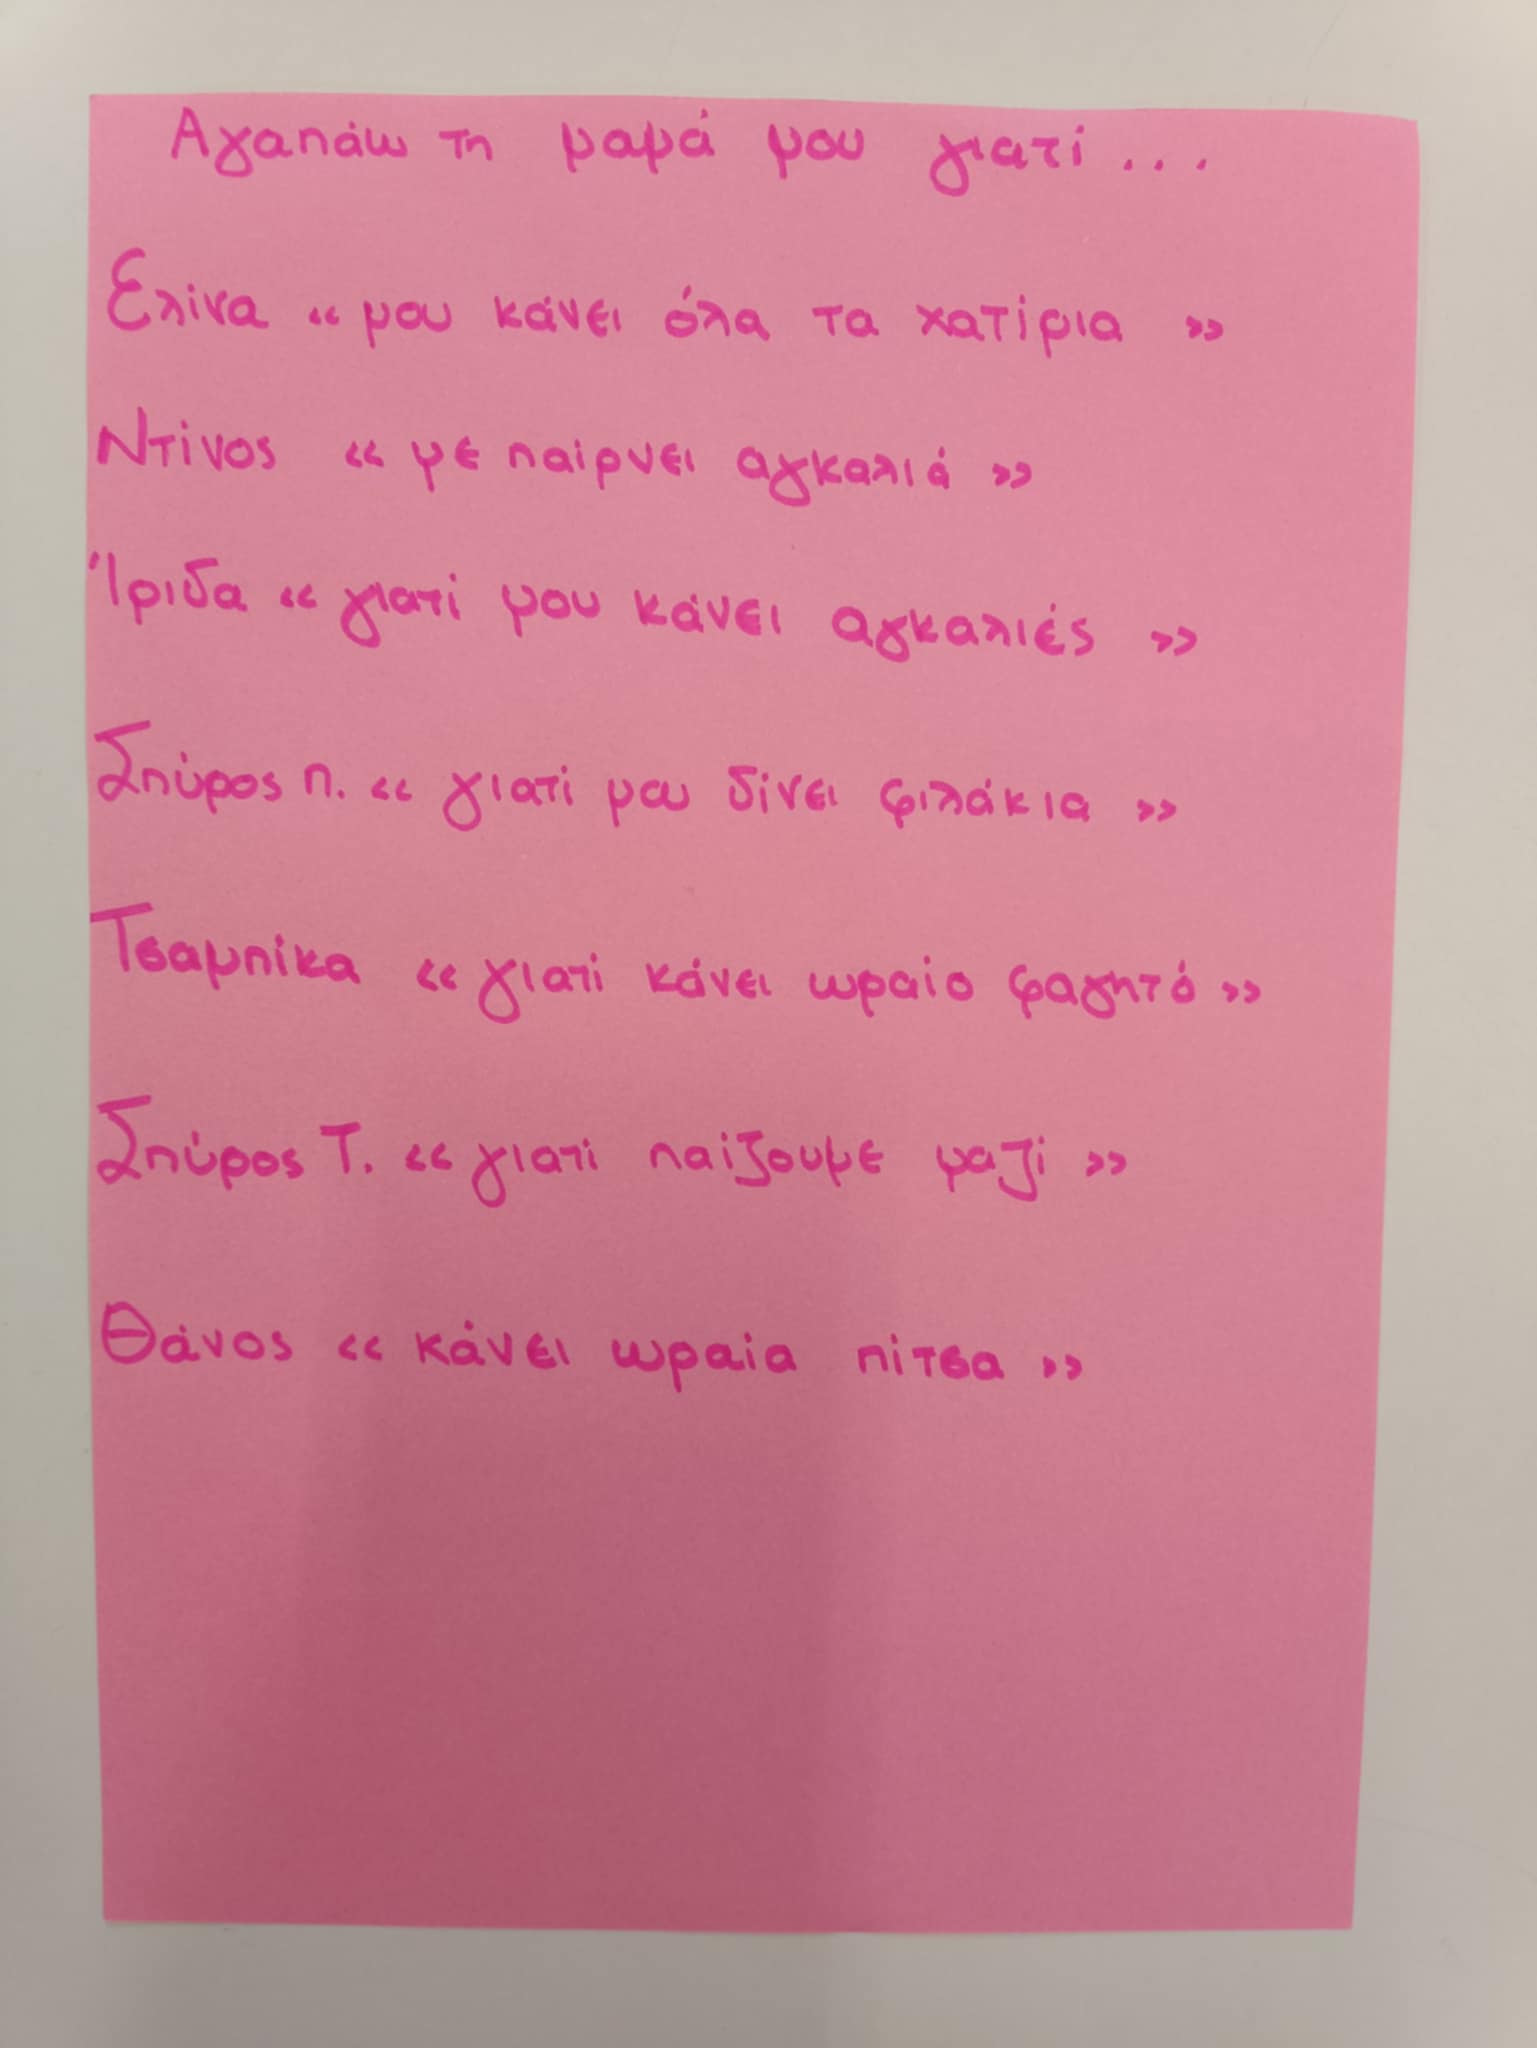 Αγαπάω τη μαμά μου γιατί...
Ελίνα « μου κάνει όλα τα χατίρια »
Ντίνος « με παίρνει αγκαλιά »
Ίριδα « γιατί μου κάνει αγκαλιές »
Σπύρος Π. « γιατί μου δίνει φιλάκια »
Τσαμπίκα « γιατί κάνει ωραίο φαγητό »
Σπύρος Τ. « γιατί παίζουμε μαζί »
Θάνος « κάνει ωραία πίτσα »